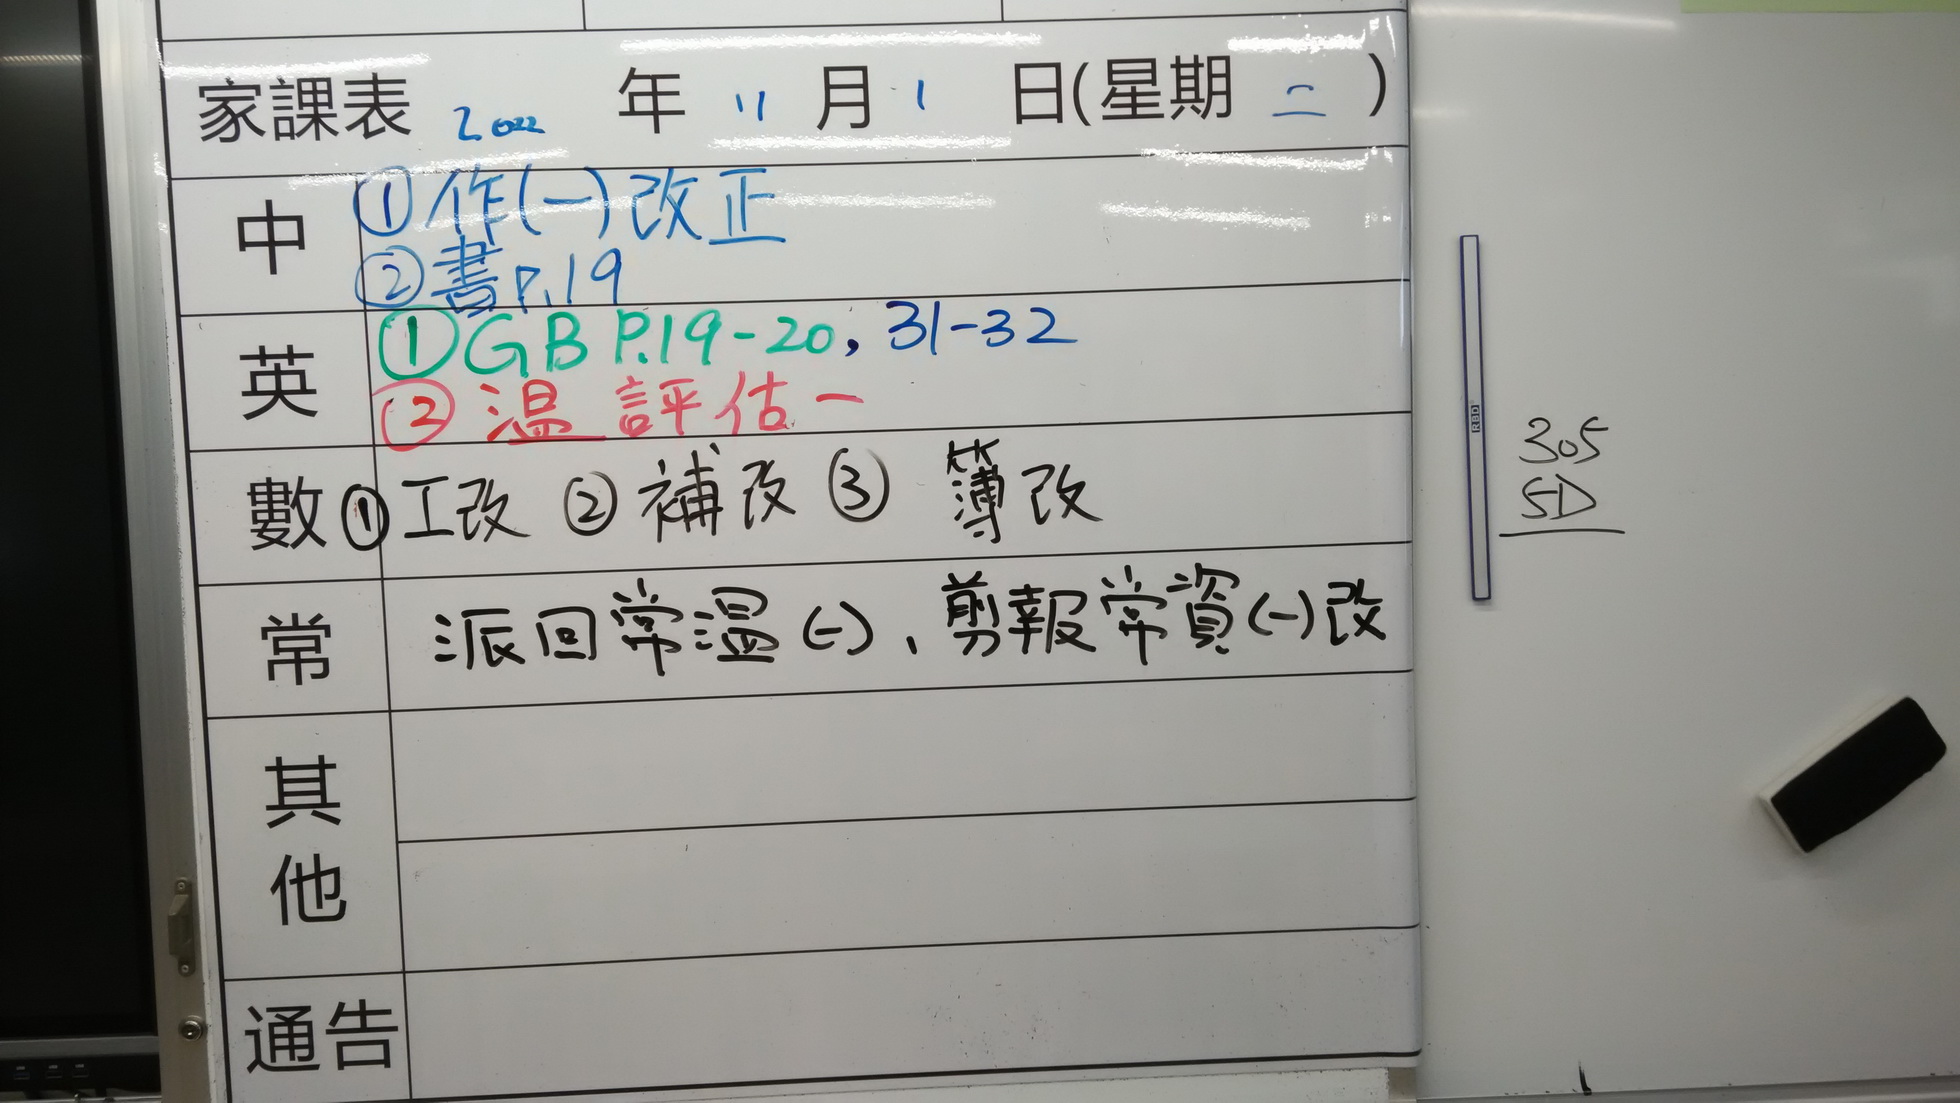 家課表 2022 年 11 月 1 日(星期 二 )
中 ①作(一)改正
②書P.19
英 ①GB P.19-20, 31-32
②温 評估一
數 ①工改 ②補改 ③簿改
常 派回常溫(一)、剪報常資(一)改
其他
通告
RBD
305
5D